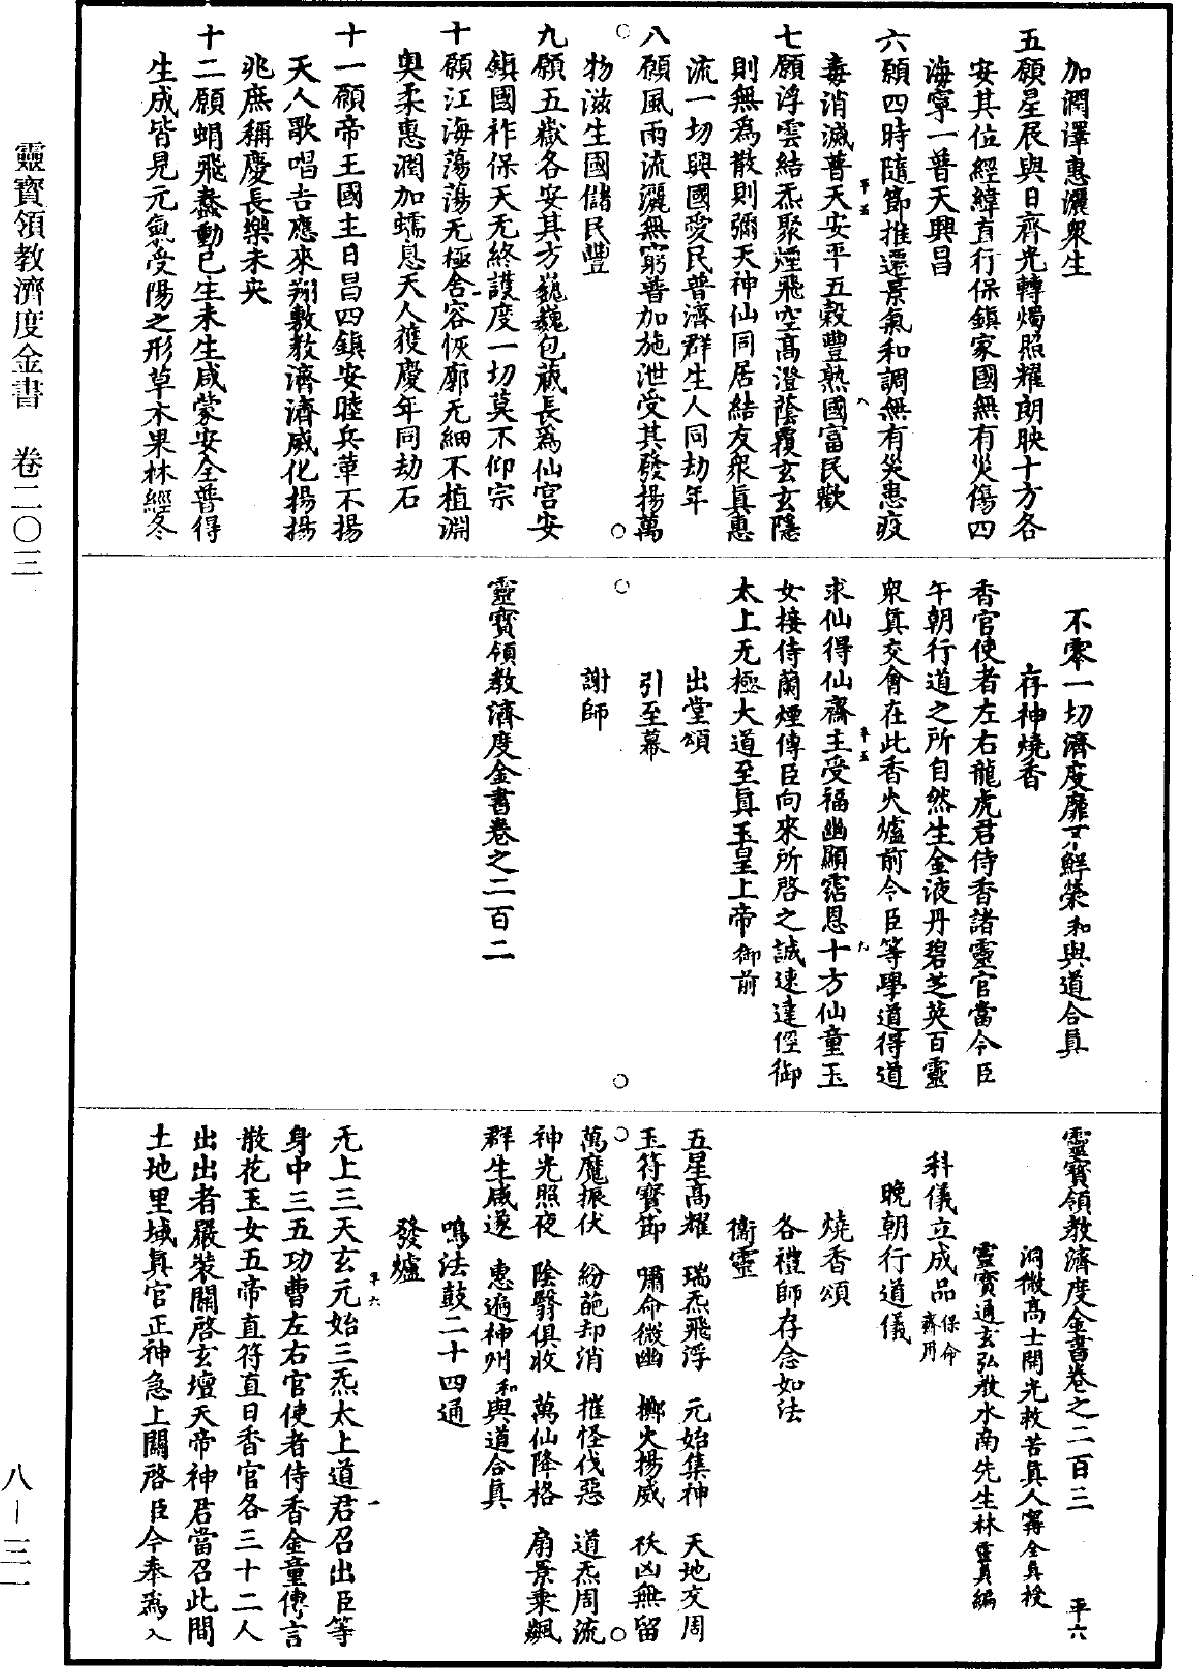 加潤澤惠灑衆生
五願星辰與日齊光轉燭照耀朗映十方各
安其位經緯直行保鎮家國無有災傷四
海寧一普天興昌
六願四時隨節推遷景氣和調無有災患疫
毒消滅普天安平五穀豐熟國富民歡
七願浮雲結炁聚煙飛空高澄蔭覆玄玄隱
則無爲散則彌天神仙同居結友衆眞惠
流一切興國愛民普濟群生人同劫年
八願風雨流灑無窮普加施泄受其發揚萬
物滋生國儲民豐
九願五嶽各安其方巍巍包藏長爲仙宮安
鎮國祚保天无終護度一切莫不仰宗
十願江海蕩蕩无極含容恢廓无細不植淵
奧柔惠潤加蠕息天人獲慶年同劫石
十一願帝王國主日昌四鎮安睦兵革不揚
天人歌唱吉應來翔敷教濟濟威化揚揚
兆庶稱慶長樂未央
十二願蜎飛蠢動已生未生咸蒙安全普得
生成皆見元氣受陽之形草木果林經冬
不零一切濟度靡不鮮榮和與道合眞
存神燒香
香官使者左右龍虎君侍香諸靈官當令臣
午朝行道之所自然生金液丹碧芝英百靈
衆眞交會在此香火爐前令臣等學道得道
求仙得仙齋主受福幽顯霑恩十方仙童玉
女接侍蘭煙傳臣向來所啓之誠速達徑御
太上无極大道至眞玉皇上帝御前
出堂頌
引至幕
謝師
靈寶領教濟度金書卷之二百二
靈寶領教濟度金書卷之二百三 平六
洞微高士開光救苦眞人甯全眞授
靈寶通玄弘教水南先生林靈眞編
科儀立成品保命齋用
晚朝行道儀
燒香頌
各禮師存念如法
衛靈
五星高耀 瑞炁飛浮 元始集神 天地交周
玉符寶節 嘯命微幽 擲火揚威 袄凶無留
萬魔振伏 紛葩却消 摧怪伐惡 道炁周流
神光照夜 陰翳俱收 萬仙降格 扇景乘飆
群生咸遂 惠遍神州和與道合眞
鳴法鼓二十四通
發爐
无上三天玄元始三炁太上道君召出臣等
身中三五功曹左右官使者侍香金童傳言
散花玉女五帝直符直日香官各三十二人
出出者嚴裝關啓玄壇天帝神君當召此間
土地里域眞官正神急上關啓臣今奉爲入
靈寶領教濟度金書 卷二〇三
八—三一